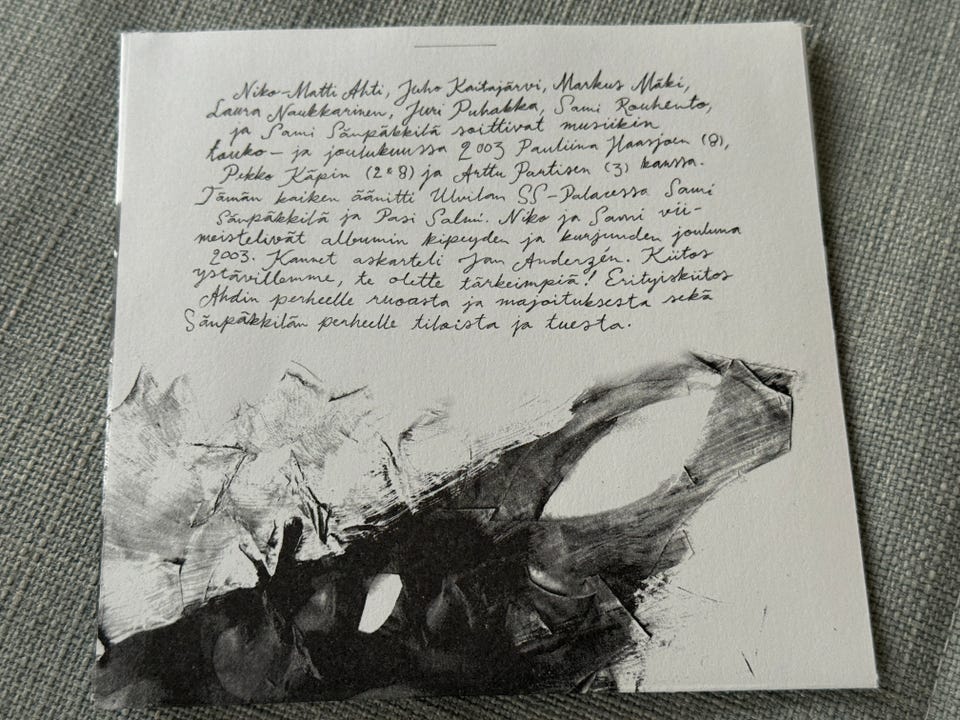 Niko-Matti Ahti, Juho Kaitajärvi, Markus Mäki,
Laura Naukkarinen, Juri Puhakka, Sami Rouhento,
ja Sami Sänpäkkilä soittivat musiikin
touko- ja joulukuussa 2003 Pauliina Haasjoen (8),
Pekko Käpin (2&8) ja Arttu Partisen (3) kanssa.
Tämän kaiken äänitti Ulvilan SS-Palacessa Sami
Sänpäkkilä ja Pasi Salmi. Niko ja Sami vii-
meistelivät albumin kipeyden ja kurjuuden jouluna
2003. Kannet askarteli Jan Anderzén. Kiitos
ystävillemme, te olette tärkeimpiä! Erityiskiitos
Ahdin perheelle ruoasta ja majoituksesta sekä
Sänpäkkilän perheelle tiloista ja tuesta.